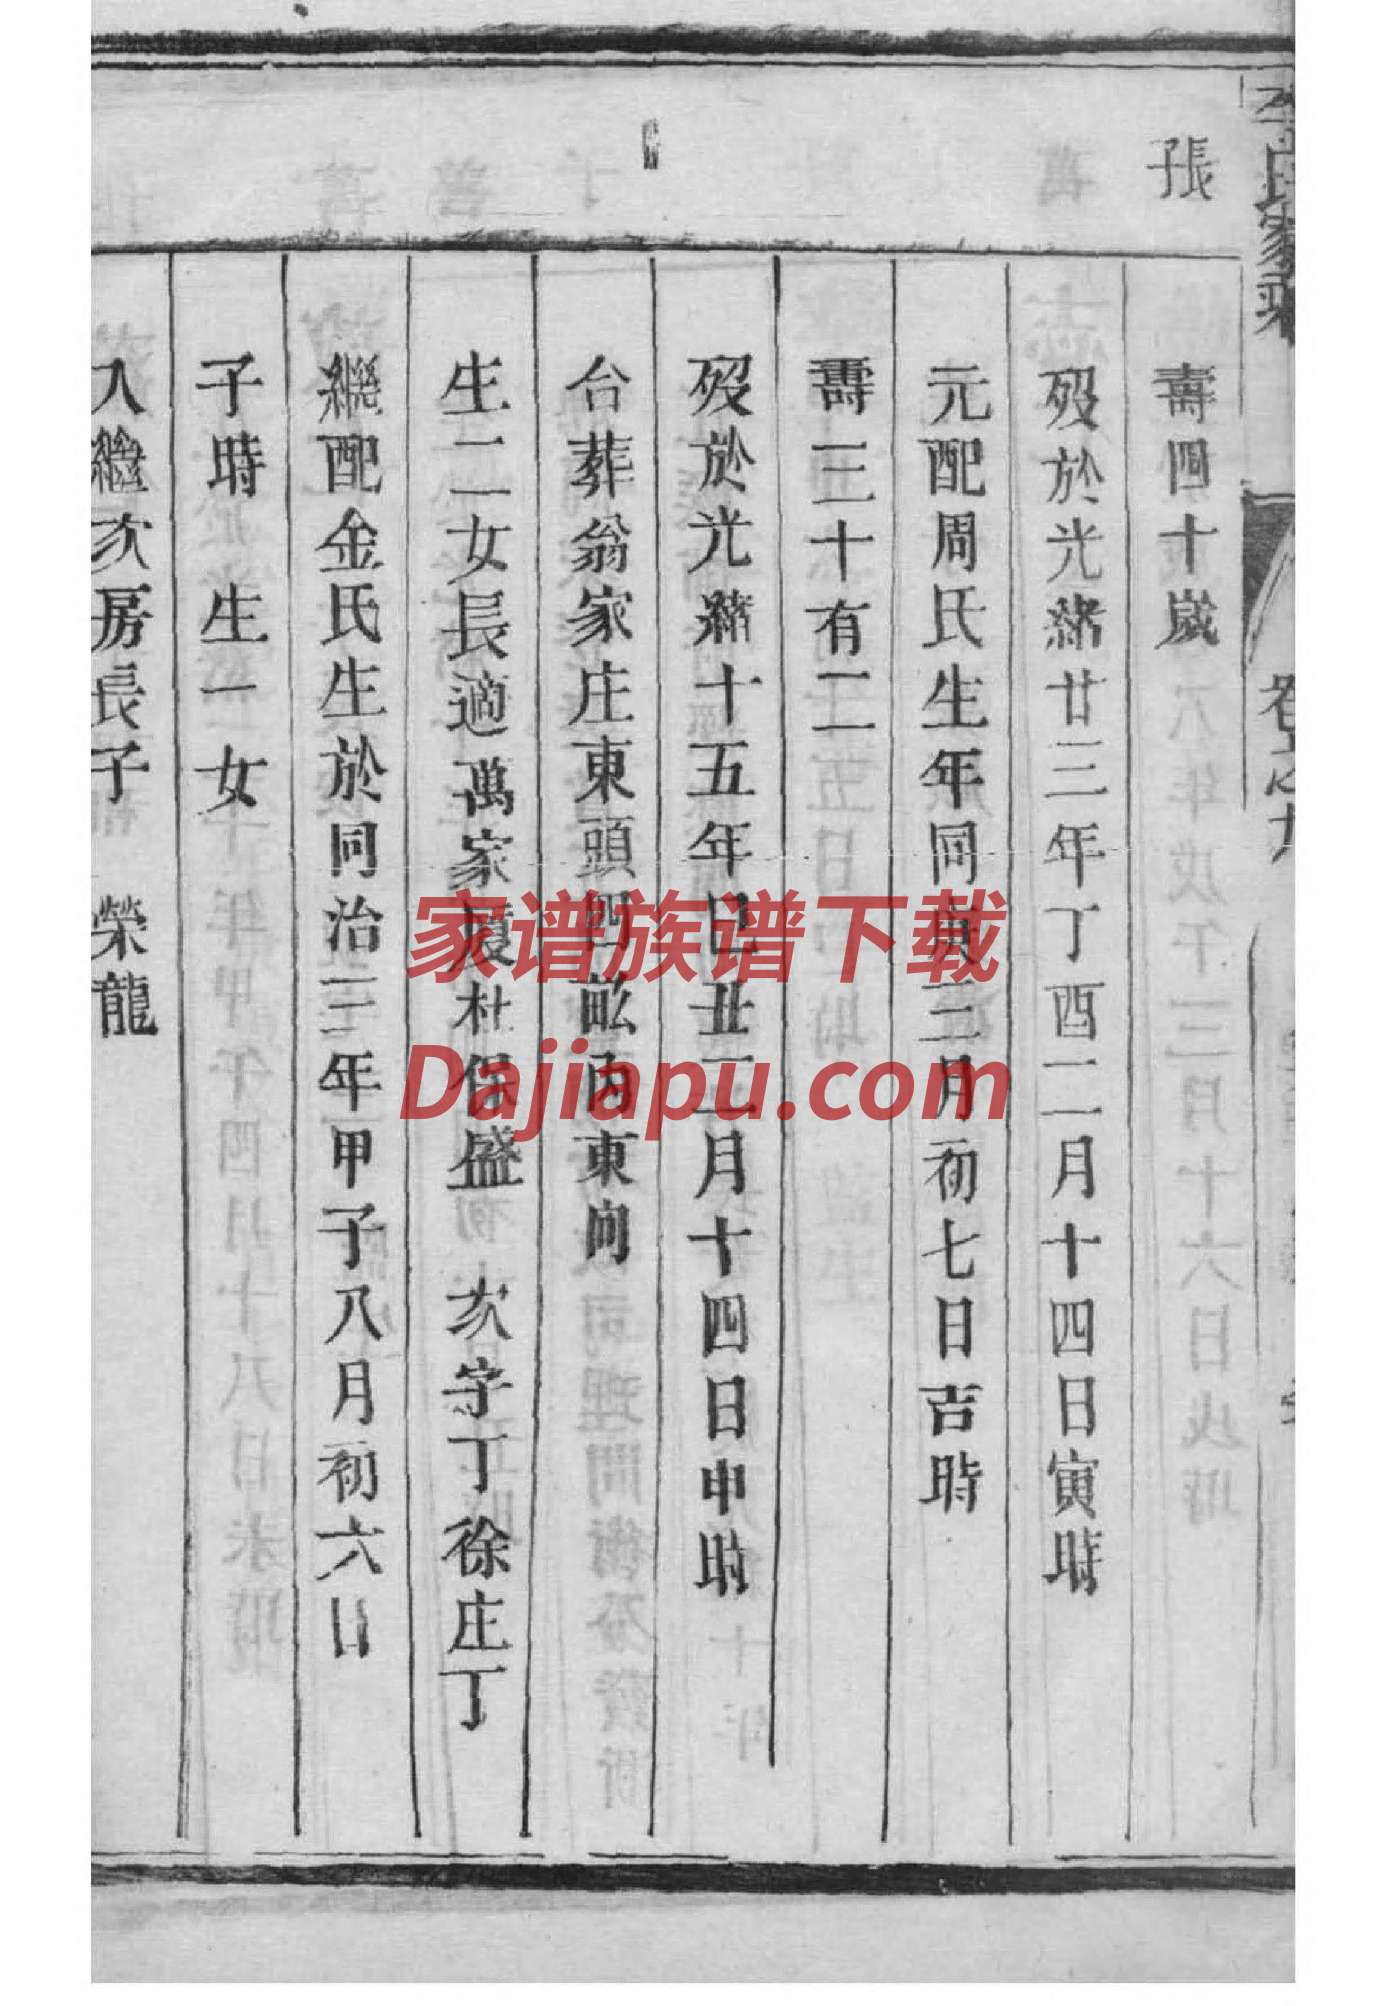 張
壽四十歲
歿於光緒廿三年丁酉二月十四日寅時
元配周氏生年同庚三月初七日吉時
壽三十有二
歿於光緒十五年己丑二月十四日申時
台葬翁家庄東頭四畝內東向
生二女長適萬家廈杜保盛 次字丁徐庄丁
繼配金氏生於同治三年甲子八月初六日
子時 生一女
入繼次房長子 榮龍
家谱族谱下载
Dajiapu.com